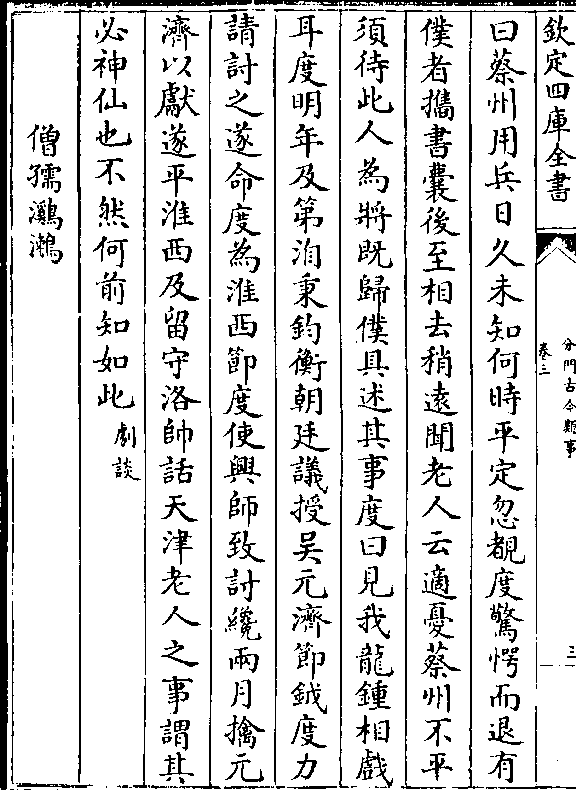 欽定四庫全書
分門古今類事
卷三
三
曰蔡州用兵日久未知何時平定忽覩度驚愕而退有
僕者攜書囊後至相去稍遠聞老人云適憂蔡州不平
須待此人為將既歸僕具述其事度曰見我龍鍾相戲
耳度明年及第洎秉鈞衡朝廷議授吳元濟節鉞度力
請討之遂命度為淮西節度使興師致討纔兩月擒元
濟以獻遂平淮西及留守洛帥話天津老人之事謂其
必神仙也不然何前知如此劇談
僧孺㶉鶒